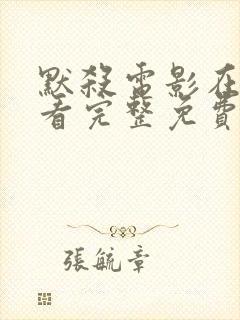 默殺電影在
看完整免費
張毓章